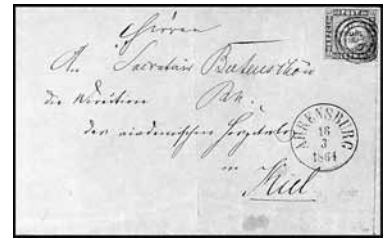 Herren
An Secretair Butenschön
die Direction
der academischen Hospitals
in
Kiel
AHRENSBURG
16
3
1864